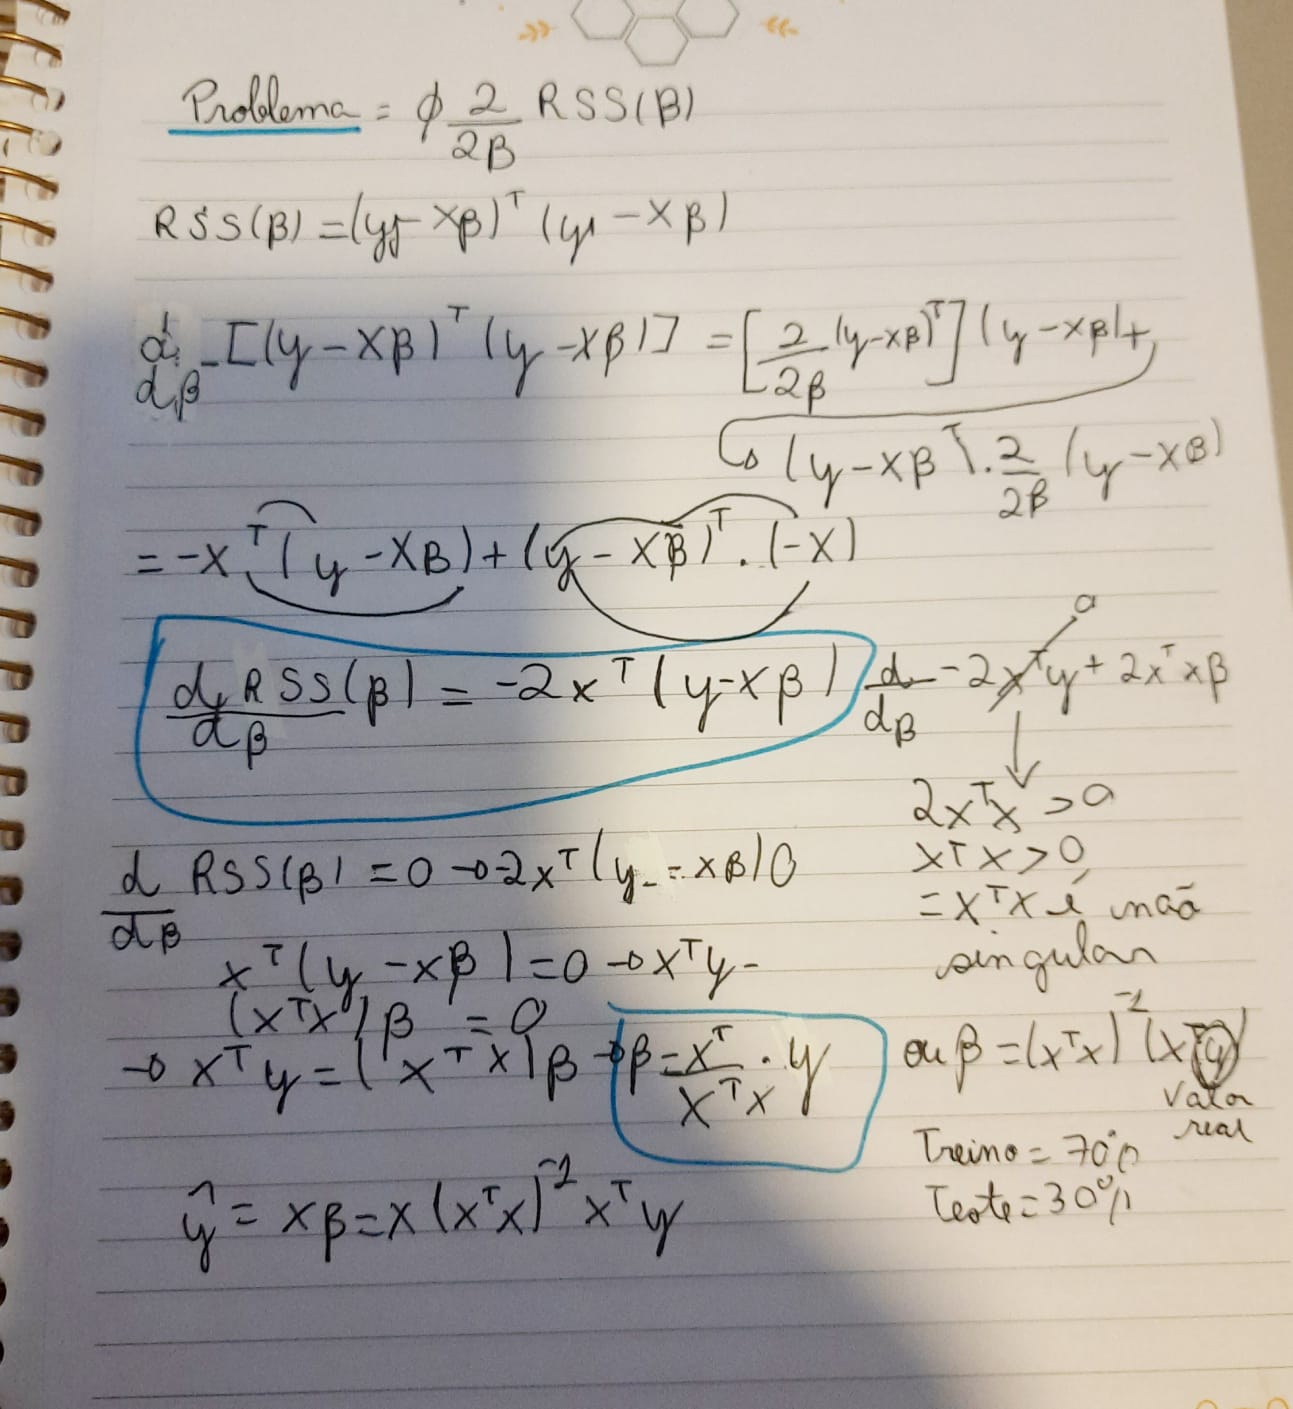 Problema = ϕ 2/2β RSS(β)
RSS(β) = (y - xβ)ᵀ (y - xβ)
d/dβ [(y - xβ)ᵀ (y - xβ)] = [2/2β (y - xβ)ᵀ] (y - xβ) +
↳ (y - xβ)ᵀ . 2/2β (y - xβ)
= -xᵀ (y - xβ) + (y - xβ)ᵀ . (-x)
d RSS(β)/dβ = -2xᵀ (y - xβ)
d/dβ - 2xᵀy + 2xᵀxβ
0
2xᵀx > 0
xᵀx > 0
= xᵀx é não
singular
d/dβ RSS(β) = 0 → -2xᵀ (y - xβ) 0
xᵀ (y - xβ) = 0 → xᵀy -
(xᵀx) β = 0
→ xᵀy = (xᵀx) β → β = xᵀ/xᵀx . y
ou β = (xᵀx)⁻¹ (xᵀy)
Valor
real
Treino = 70%
Teste = 30%
ŷ = xβ = x (xᵀx)⁻¹ xᵀy